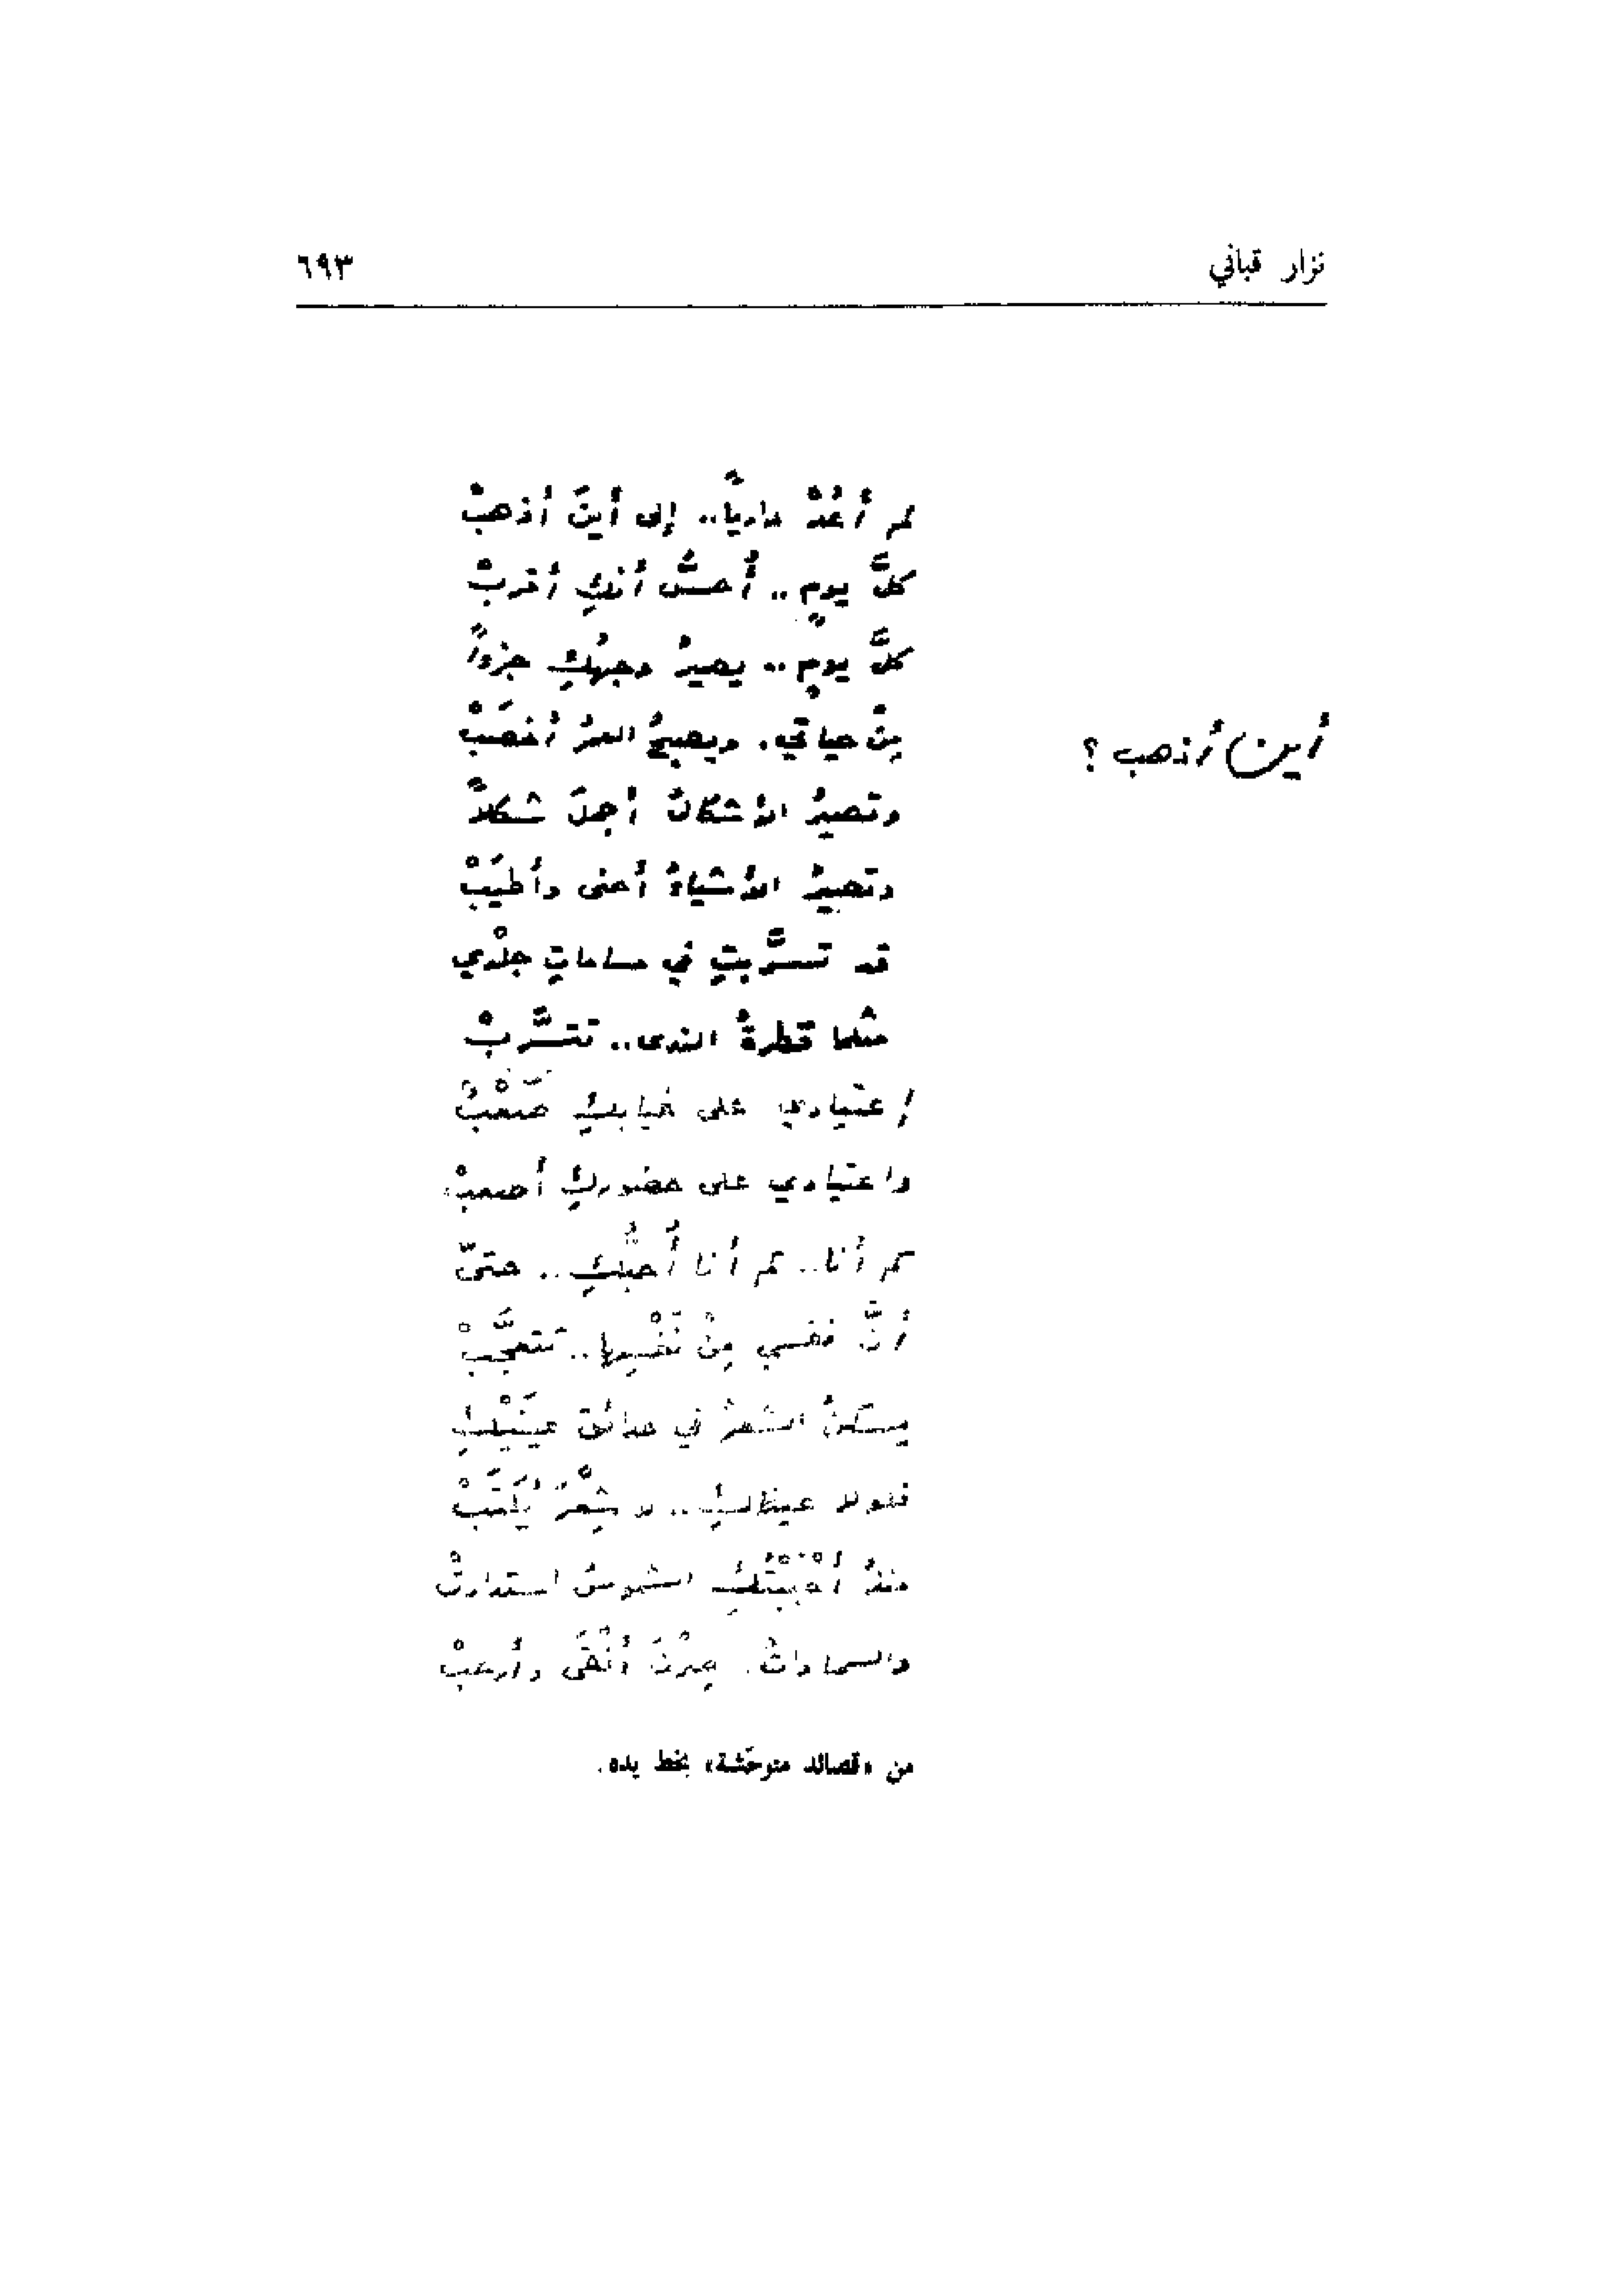 نزار قباني ٦٩٣
أين أذهب ؟
لم أعُدْ دارياً.. إلى أينَ أذهبْ
كلَّ يومٍ.. أُحسُّ أنكِ أقربْ
كلَّ يومٍ.. يصيرُ وجهُكِ جزءاً
مِنْ حياتي. ويصبحُ العمرُ أخصَبْ
وتصيرُ الأشكالُ أجملَ شكلاً
وتصيرُ الأشياءُ أحلى وأطيَبْ
قد تسرَّبتِ في مساماتِ جلْدي
مثلما قطرةُ الندى.. تتسرَّبْ
إعتيادي على غيابكِ صَعْبٌ
واعتيادي على حضوركِ أصعبْ
كم أنا.. كم أنا أُحبُّكِ.. حتىّ
أنَّ نفسي مِنْ نَفْسِها.. تتعجَّبْ
يسكنُ الشعرُ في حدائق عينَيْكِ
فلولا عيناكِ.. لا شِعْرَ يُكتَبْ
منذُ أحْبَبْتُكِ الشموسُ استدارتْ
والسماواتُ. صِرْنَ أنْقَى وأرحَبْ
من «قصائد متوحّشة» بخط يده.